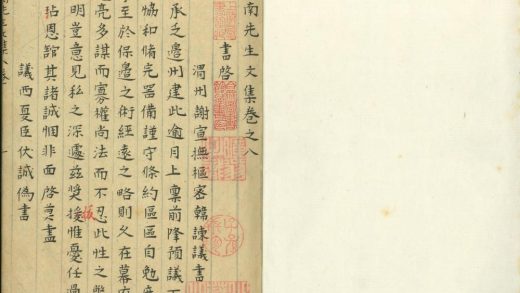 南先生文集卷之八
書啓
渭州謝宣撫樞密韓諫議書
承乏邊州建此逾月上稟前降預議
恊和脩完器備謹守條約區區自勉
至於保邊之術經遠之略則久在幕
亮多謀而寡權尚法而不忍此性之弊
明豈意見私之深處茲奬援惟憂任過
拔
玷恩館其諸誠悃非面啓莫盡
議西夏臣伏誠僞書